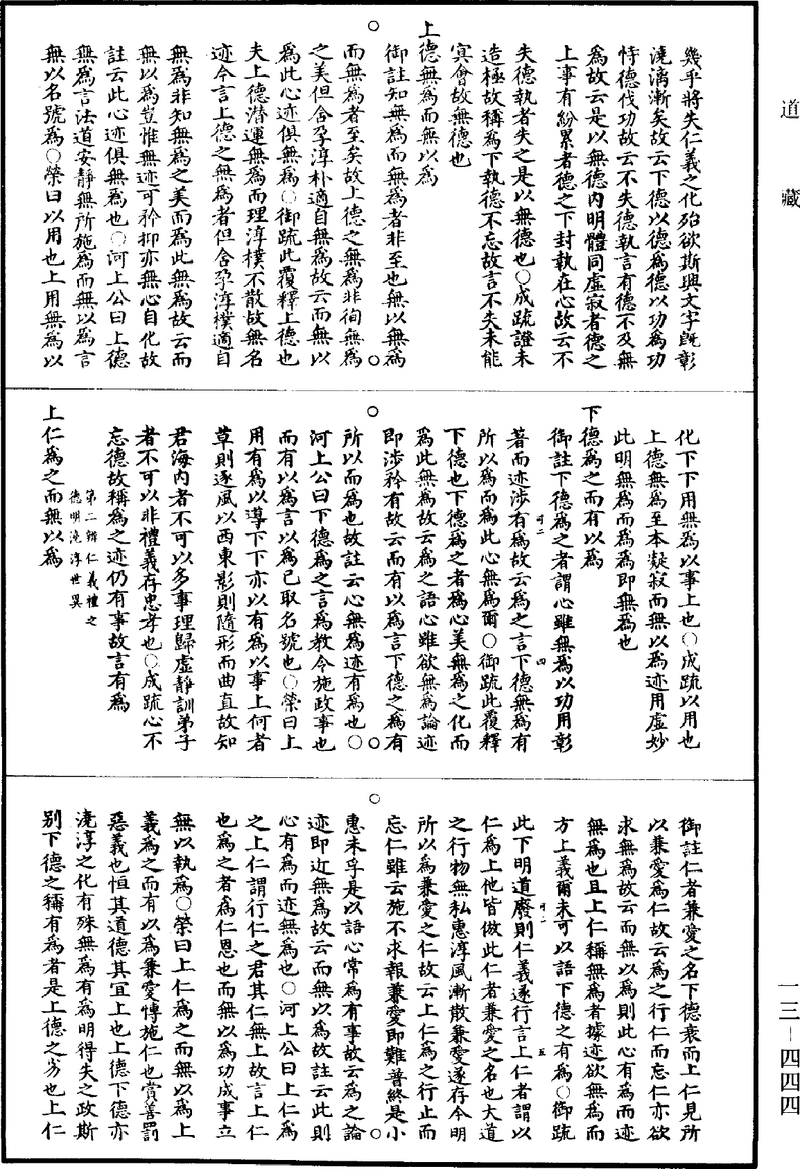 道藏
一三－四四四
幾乎將失仁義之化殆欲斯興文字旣彰
澆漓漸矣故云下德以德為德以功為功
恃德伐功故云不失德執言有德不及無
為故云是以無德內明體同虛寂者德之
上事有紛累者德之下封執在心故云不
失德執者失之是以無德也○成疏證未
造極故稱為下執德不忘故言不失未能
冥會故無德也
上德無為而無以為
御註知無為而無為者非至也無以無為
而無為者至矣故上德之無為非徇無為
之美但含孕淳朴適自無為故云而無以
為此心迹俱無為○御疏此覆釋上德也
夫上德潛運無為而理淳樸不散故無名
迹今言上德之無為者但含孕淳樸適自
無為非知無為之美而為此無為故云而
無以為豈惟無迹可矜抑亦無心自化故
註云此心迹俱無為也○河上公曰上德
無為言法道安靜無所施為而無以為言
無以名號為○榮曰以用也上用無為以
化下下用無為以事上也○成疏以用也
上德無為至本凝寂而無以為迹用虛妙
此明無為而為為即無為也
下德為之而有以為
御註下德為之者謂心雖無為以功用彰
著而迹涉有為故云為之言下德無為有
所以為而為此心無為爾○御疏此覆釋
下德也下德為之者為心美無為之化而
為此無為故云為之語心雖欲無為論迹
即涉矜有故云而有以為言下德之為有
所以而為也故註云心無為迹有為也○
河上公曰下德為之言為教令施政事也
而有以為言以為己取名號也○榮曰上
用有為以導下下亦以有為以事上何者
草則逐風以西東影則隨形而曲直故知
君海內者不可以多事理歸虛靜訓弟子
者不可以非禮義存忠孝也○成疏心不
忘德故稱為之迹仍有事故言有為
第二辯仁義禮之
德明澆淳世異
上仁為之而無以為
御註仁者兼愛之名下德衰而上仁見所
以兼愛為仁故云為之行仁而忘仁亦欲
求無為故云而無以為則此心有為而迹
無為也且上仁稱無為者據迹欲無為而
方上義爾未可以語下德之有為○御疏
此下明道廢則仁義遂行言上仁者謂以
仁為上他皆倣此仁者兼愛之名也大道
之行物無私惠淳風漸散兼愛遂存今明
所以為兼愛之仁故云上仁為之行止而
忘仁雖云施不求報兼愛即難普終是小
惠未孚是以語心常為有事故云為之論
迹即近無為故云而無以為故註云此則
心有為而迹無為也○河上公曰上仁為
之上仁謂行仁之君其仁無上故言上仁
也為之者為仁恩也而無以為功成事立
無以執為○榮曰上仁為之而無以為上
義為之而有以為兼愛慱施仁也賞善罰
惡義也恒其道德其宜上也上德下德亦
澆淳之化有殊無為有為明得失之政斯
別下德之稱有為者是上德之劣也上仁